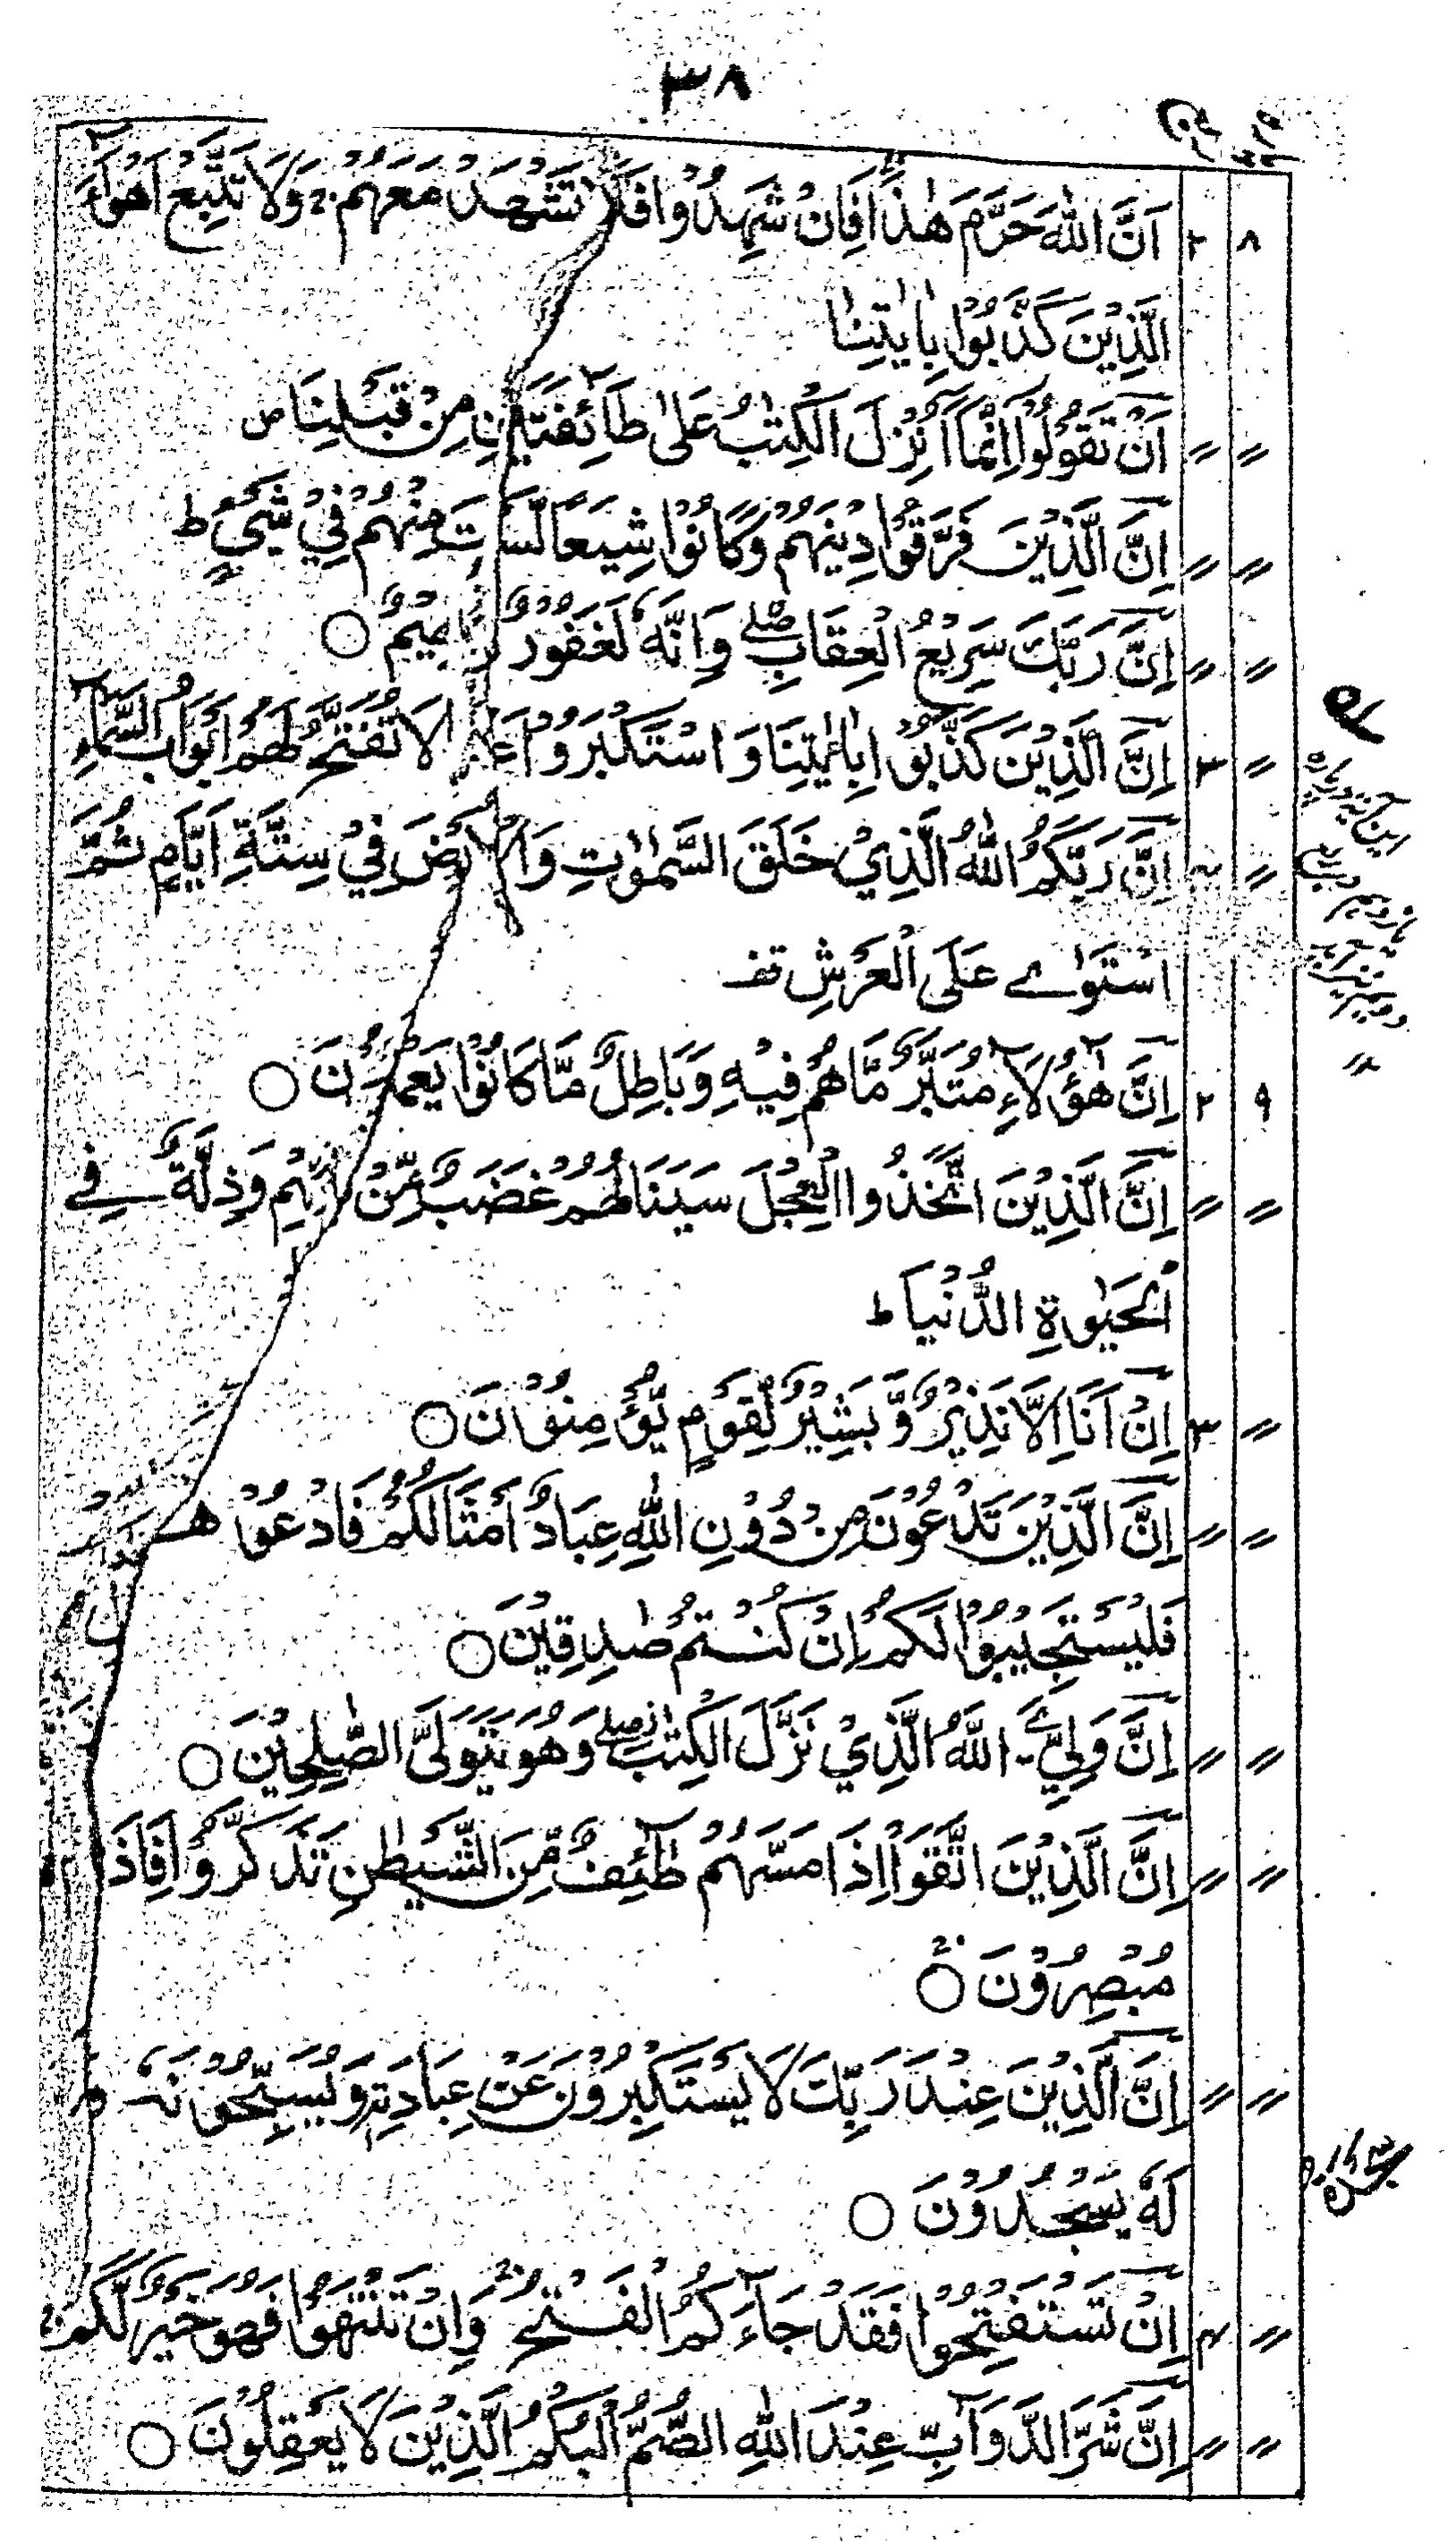 ۳۸
اَنَّ اللّٰهَ حَرَّمَ هٰذَا فَاِنْ شَهِدُوْا فَلَا تَشْهَدْ مَعَهُمْ ج وَلَا تَتَّبِعْ اَهْوَآءَ ۲ ۸
الَّذِيْنَ كَذَّبُوْا بِاٰيٰتِنَا
اَنْ تَقُوْلُوْا اِنَّمَا اُنْزِلَ الْكِتٰبُ عَلٰى طَآئِفَتَيْنِ مِنْ قَبْلِنَا ص 〃 〃
اِنَّ الَّذِيْنَ فَرَّقُوْا دِيْنَهُمْ وَكَانُوْا شِيَعًا لَّسْتَ مِنْهُمْ فِيْ شَيْءٍ ط 〃 〃
اِنَّ رَبَّكَ سَرِيْعُ الْعِقَابِ صلے وَاِنَّهٗ لَغَفُوْرٌ رَّحِيْمٌ ○ 〃 〃
اِنَّ الَّذِيْنَ كَذَّبُوْا بِاٰيٰتِنَا وَاسْتَكْبَرُوْا عَنْهَا لَا تُفَتَّحُ لَهُمْ اَبْوَابُ السَّمَآءِ ۳ 〃
اِنَّ رَبَّكُمُ اللّٰهُ الَّذِيْ خَلَقَ السَّمٰوٰتِ وَالْاَرْضَ فِيْ سِتَّةِ اَيَّامٍ ثُمَّ 〃
اسْتَوٰے عَلَى الْعَرْشِ تف
اِنَّ هٰٓؤُلَآءِ مُتَبَّرٌ مَّا هُمْ فِيْهِ وَبَاطِلٌ مَّا كَانُوْا يَعْمَلُوْنَ ○ ۲ ۹
اِنَّ الَّذِيْنَ اتَّخَذُوا الْعِجْلَ سَيَنَالُهُمْ غَضَبٌ مِّنْ رَّبِّهِمْ وَذِلَّةٌ فِے 〃 〃
الْحَيٰوةِ الدُّنْيَا ط
اِنْ اَنَا اِلَّا نَذِيْرٌ وَّ بَشِيْرٌ لِّقَوْمٍ يُّؤْمِنُوْنَ ○ ۳ 〃
اِنَّ الَّذِيْنَ تَدْعُوْنَ مِنْ دُوْنِ اللّٰهِ عِبَادٌ اَمْثَالُكُمْ فَادْعُوْهُمْ 〃 〃
فَلْيَسْتَجِيْبُوْا لَكُمْ اِنْ كُنْتُمْ صٰدِقِيْنَ ○
اِنَّ وَلِيِّ ےَ اللّٰهُ الَّذِيْ نَزَّلَ الْكِتٰبَ صلے وَهُوَ يَتَوَلَّى الصّٰلِحِيْنَ ○ 〃 〃
اِنَّ الَّذِيْنَ اتَّقَوْا اِذَا مَسَّهُمْ طٰٓئِفٌ مِّنَ الشَّيْطٰنِ تَذَكَّرُوْا فَاِذَا هُمْ 〃 〃
مُّبْصِرُوْنَ ○
اِنَّ الَّذِيْنَ عِنْدَ رَبِّكَ لَا يَسْتَكْبِرُوْنَ عَنْ عِبَادَتِهٖ وَيُسَبِّحُوْنَهٗ وَ 〃 〃
لَهٗ يَسْجُدُوْنَ ○
اِنْ تَسْتَفْتِحُوْا فَقَدْ جَآءَكُمُ الْفَتْحُ ج وَاِنْ تَنْتَهُوْا فَهُوَ خَيْرٌ لَّكُمْ ج ۴ 〃
اِنَّ شَرَّ الدَّوَآبِّ عِنْدَ اللّٰهِ الصُّمُّ الْبُكْمُ الَّذِيْنَ لَا يَعْقِلُوْنَ ○ 〃 〃